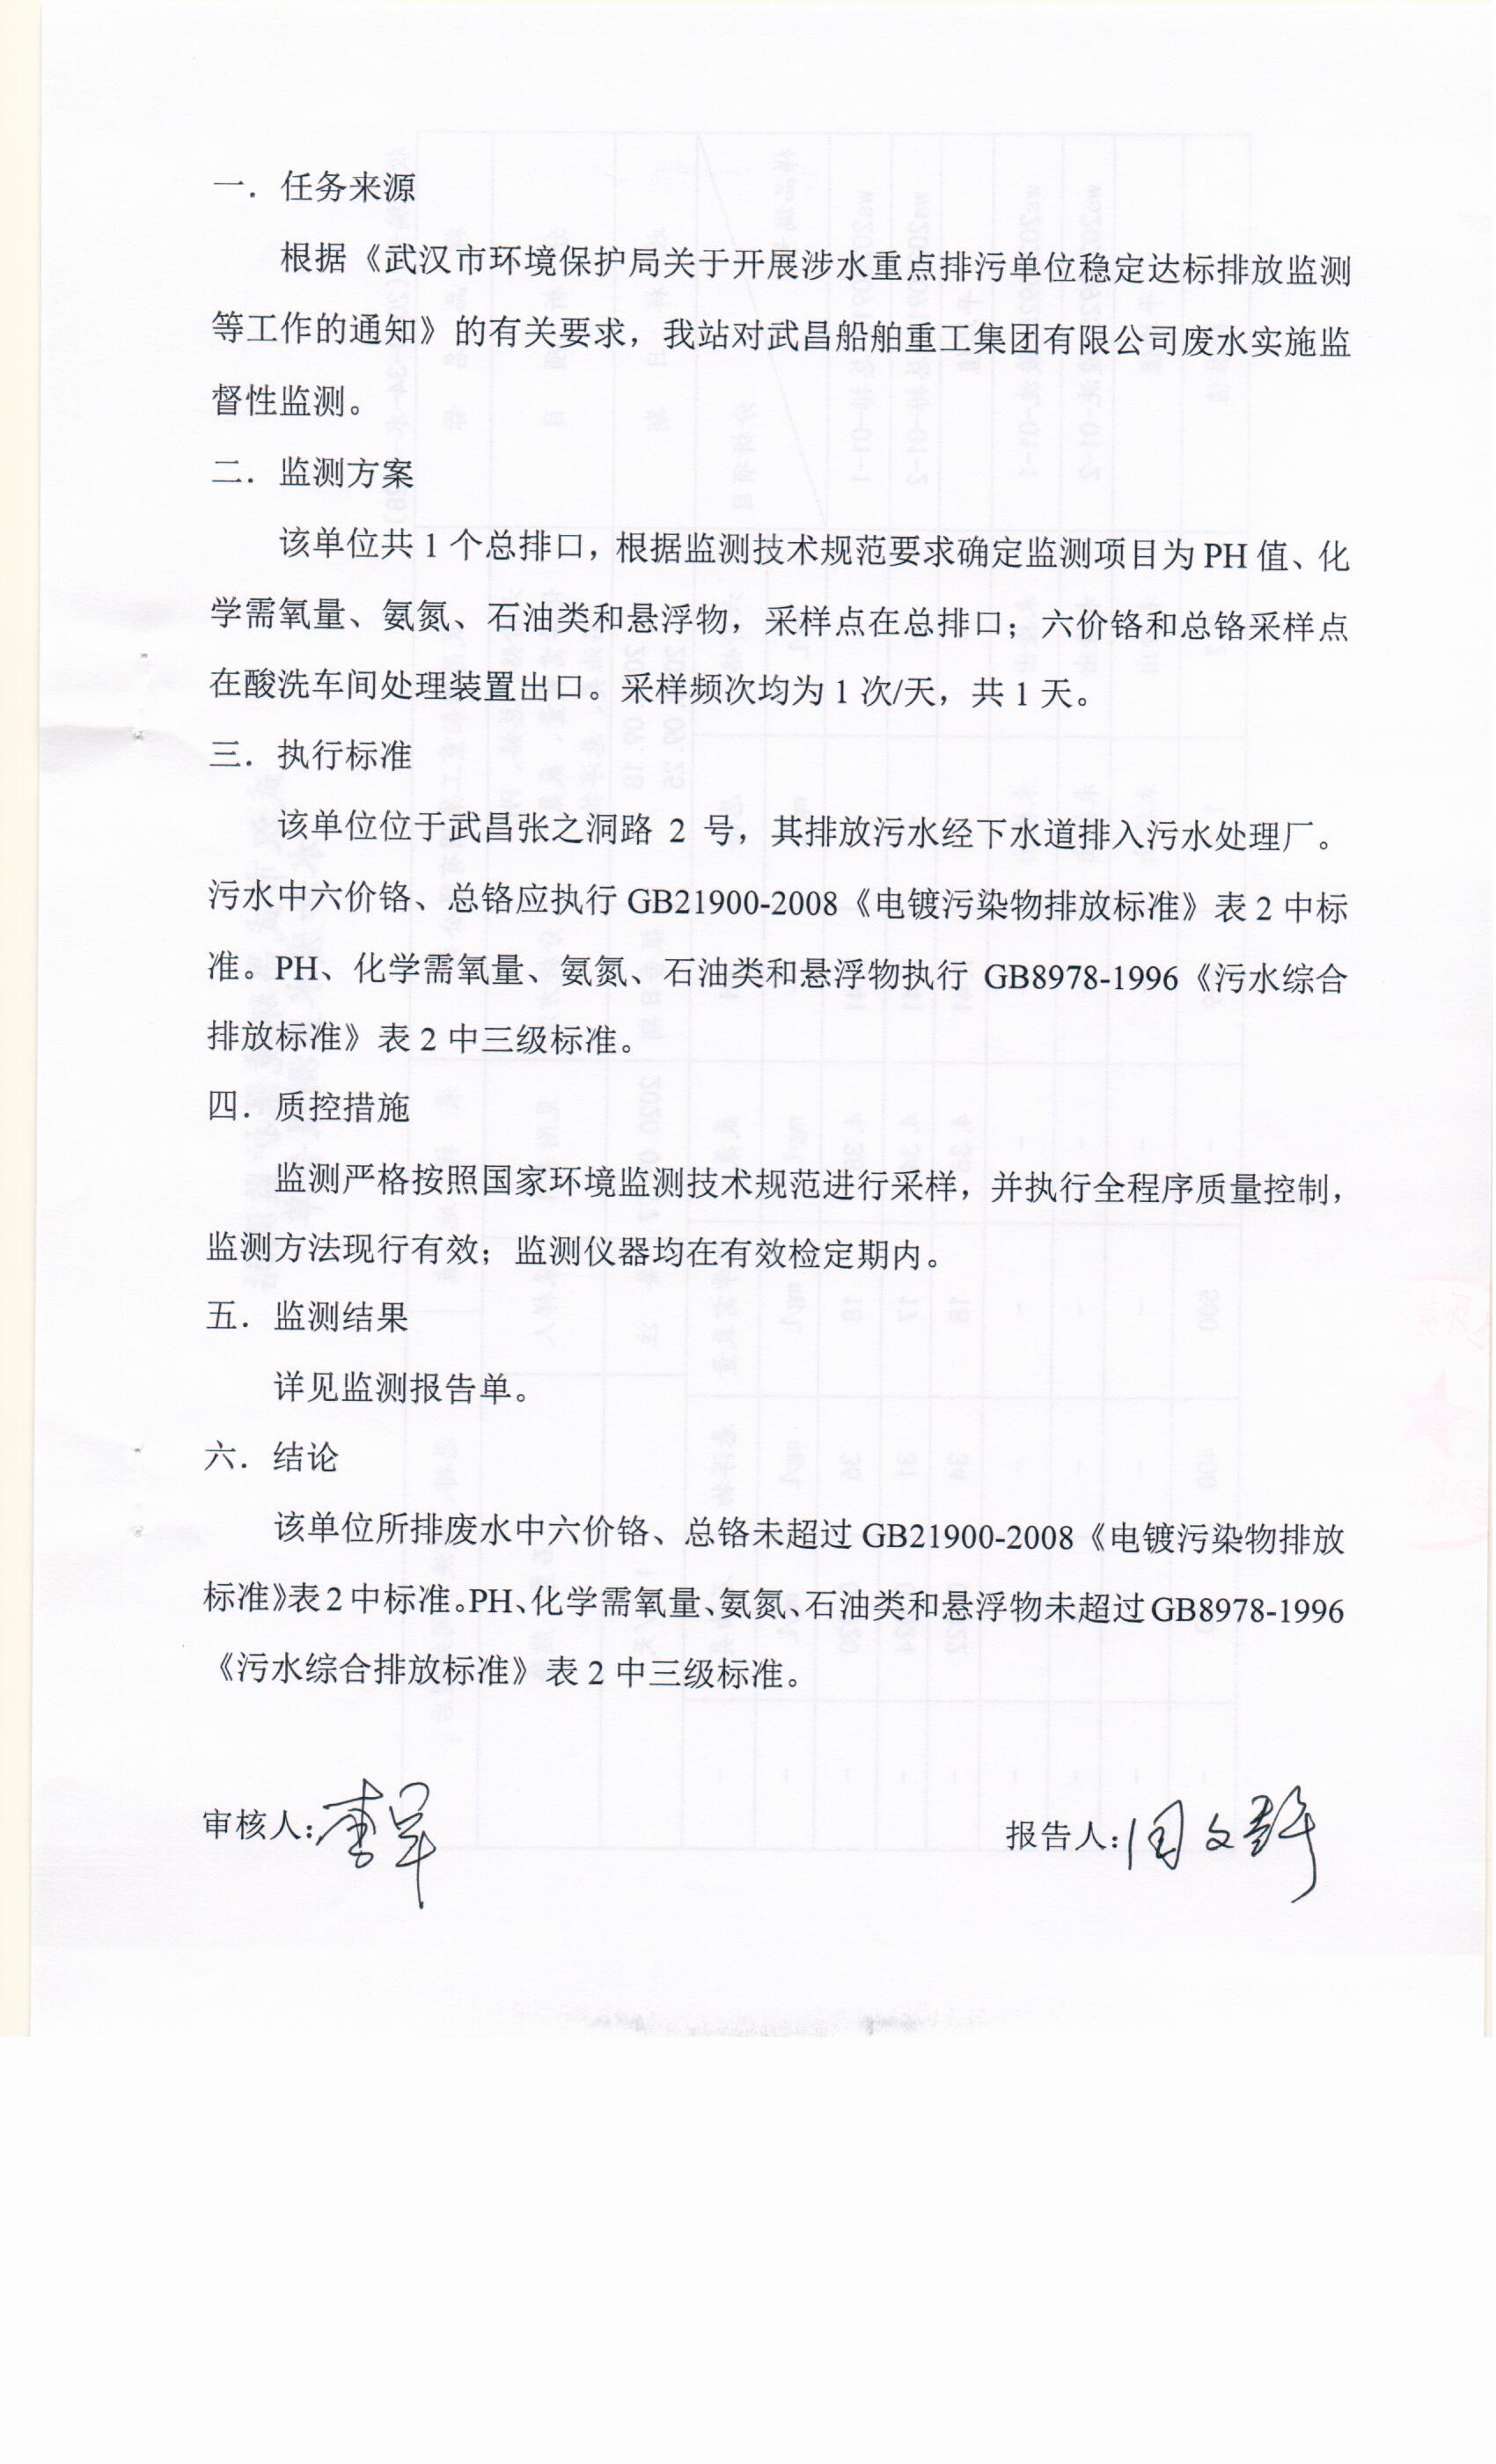 一．任务来源
根据《武汉市环境保护局关于开展涉水重点排污单位稳定达标排放监测
等工作的通知》的有关要求，我站对武昌船舶重工集团有限公司废水实施监
督性监测。
二．监测方案
该单位共 1 个总排口，根据监测技术规范要求确定监测项目为 PH 值、化
学需氧量、氨氮、石油类和悬浮物，采样点在总排口；六价铬和总铬采样点
在酸洗车间处理装置出口。采样频次均为 1 次/天，共 1 天。
三．执行标准
该单位位于武昌张之洞路 2 号，其排放污水经下水道排入污水处理厂。
污水中六价铬、总铬应执行 GB21900-2008《电镀污染物排放标准》表 2 中标
准。PH、化学需氧量、氨氮、石油类和悬浮物执行 GB8978-1996《污水综合
排放标准》表 2 中三级标准。
四．质控措施
监测严格按照国家环境监测技术规范进行采样，并执行全程序质量控制，
监测方法现行有效；监测仪器均在有效检定期内。
五．监测结果
详见监测报告单。
六．结论
该单位所排废水中六价铬、总铬未超过 GB21900-2008《电镀污染物排放
标准》表 2 中标准。PH、化学需氧量、氨氮、石油类和悬浮物未超过 GB8978-1996
《污水综合排放标准》表 2 中三级标准。
审核人：
报告人：